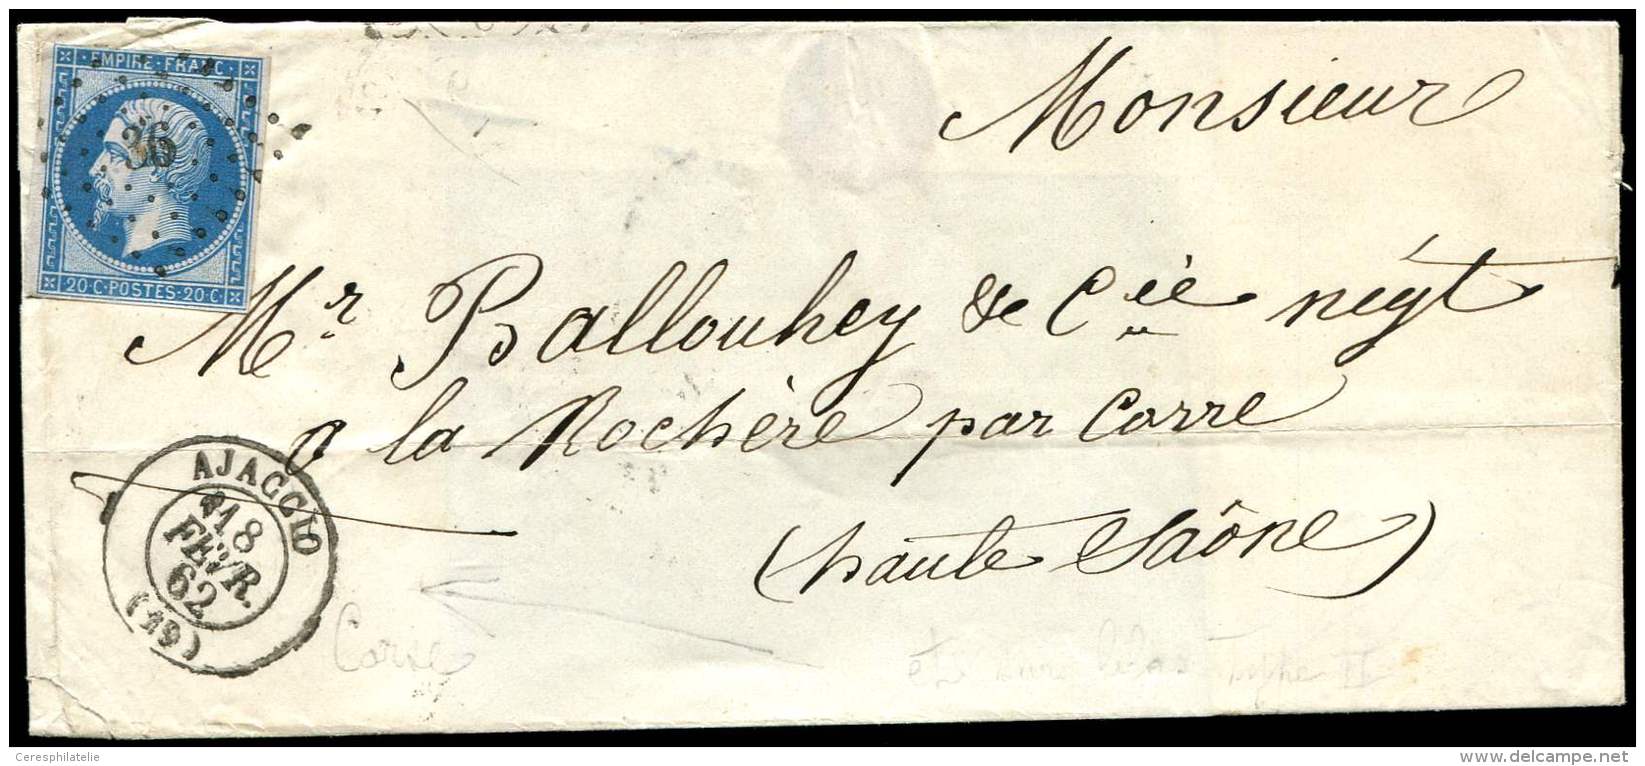 EMPIRE·FRANC·
36
20·C·POSTES·20·C·
Monsieur
Mr. Ballouhey & Cie négt
a la Rochère par Corre
(haute Saône)
AJACCIO
18
FEVR.
62
(19)
Corse
Type II
Ceresphilatelie
delcampe.net